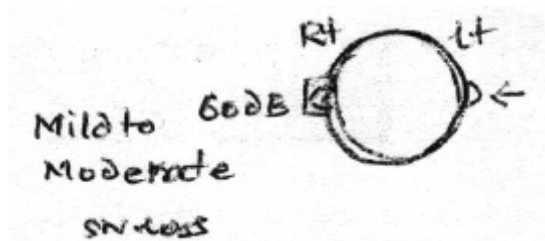 Rt Lt
60dB
Mild to
Moderate
SN loss